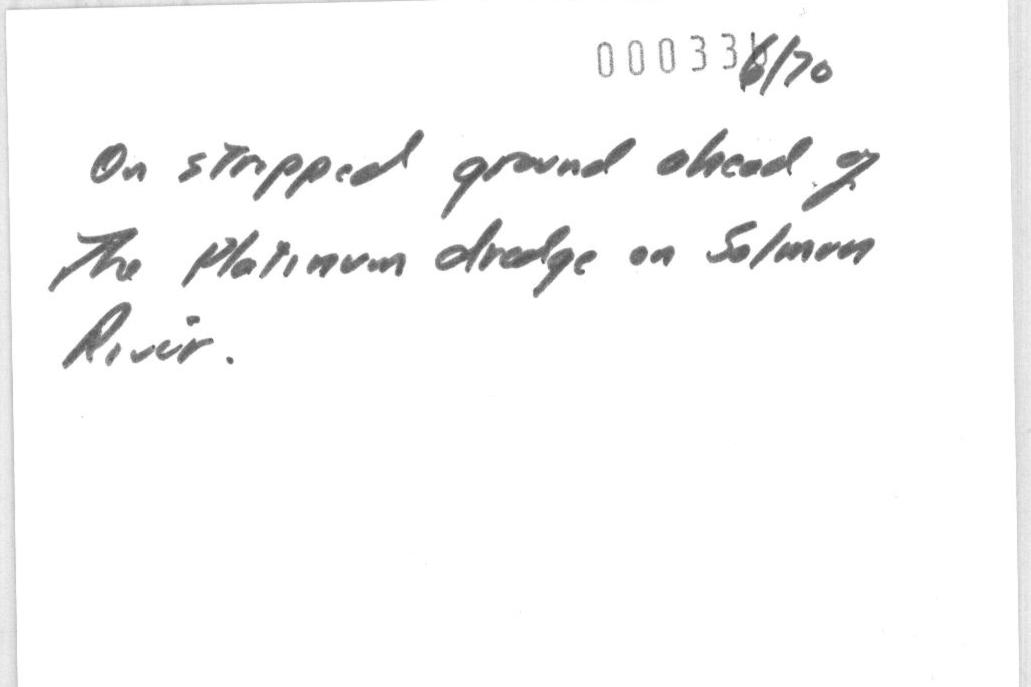 00033 6/70
On stripped ground ahead of
The Platinum dredge on Salmon
River.